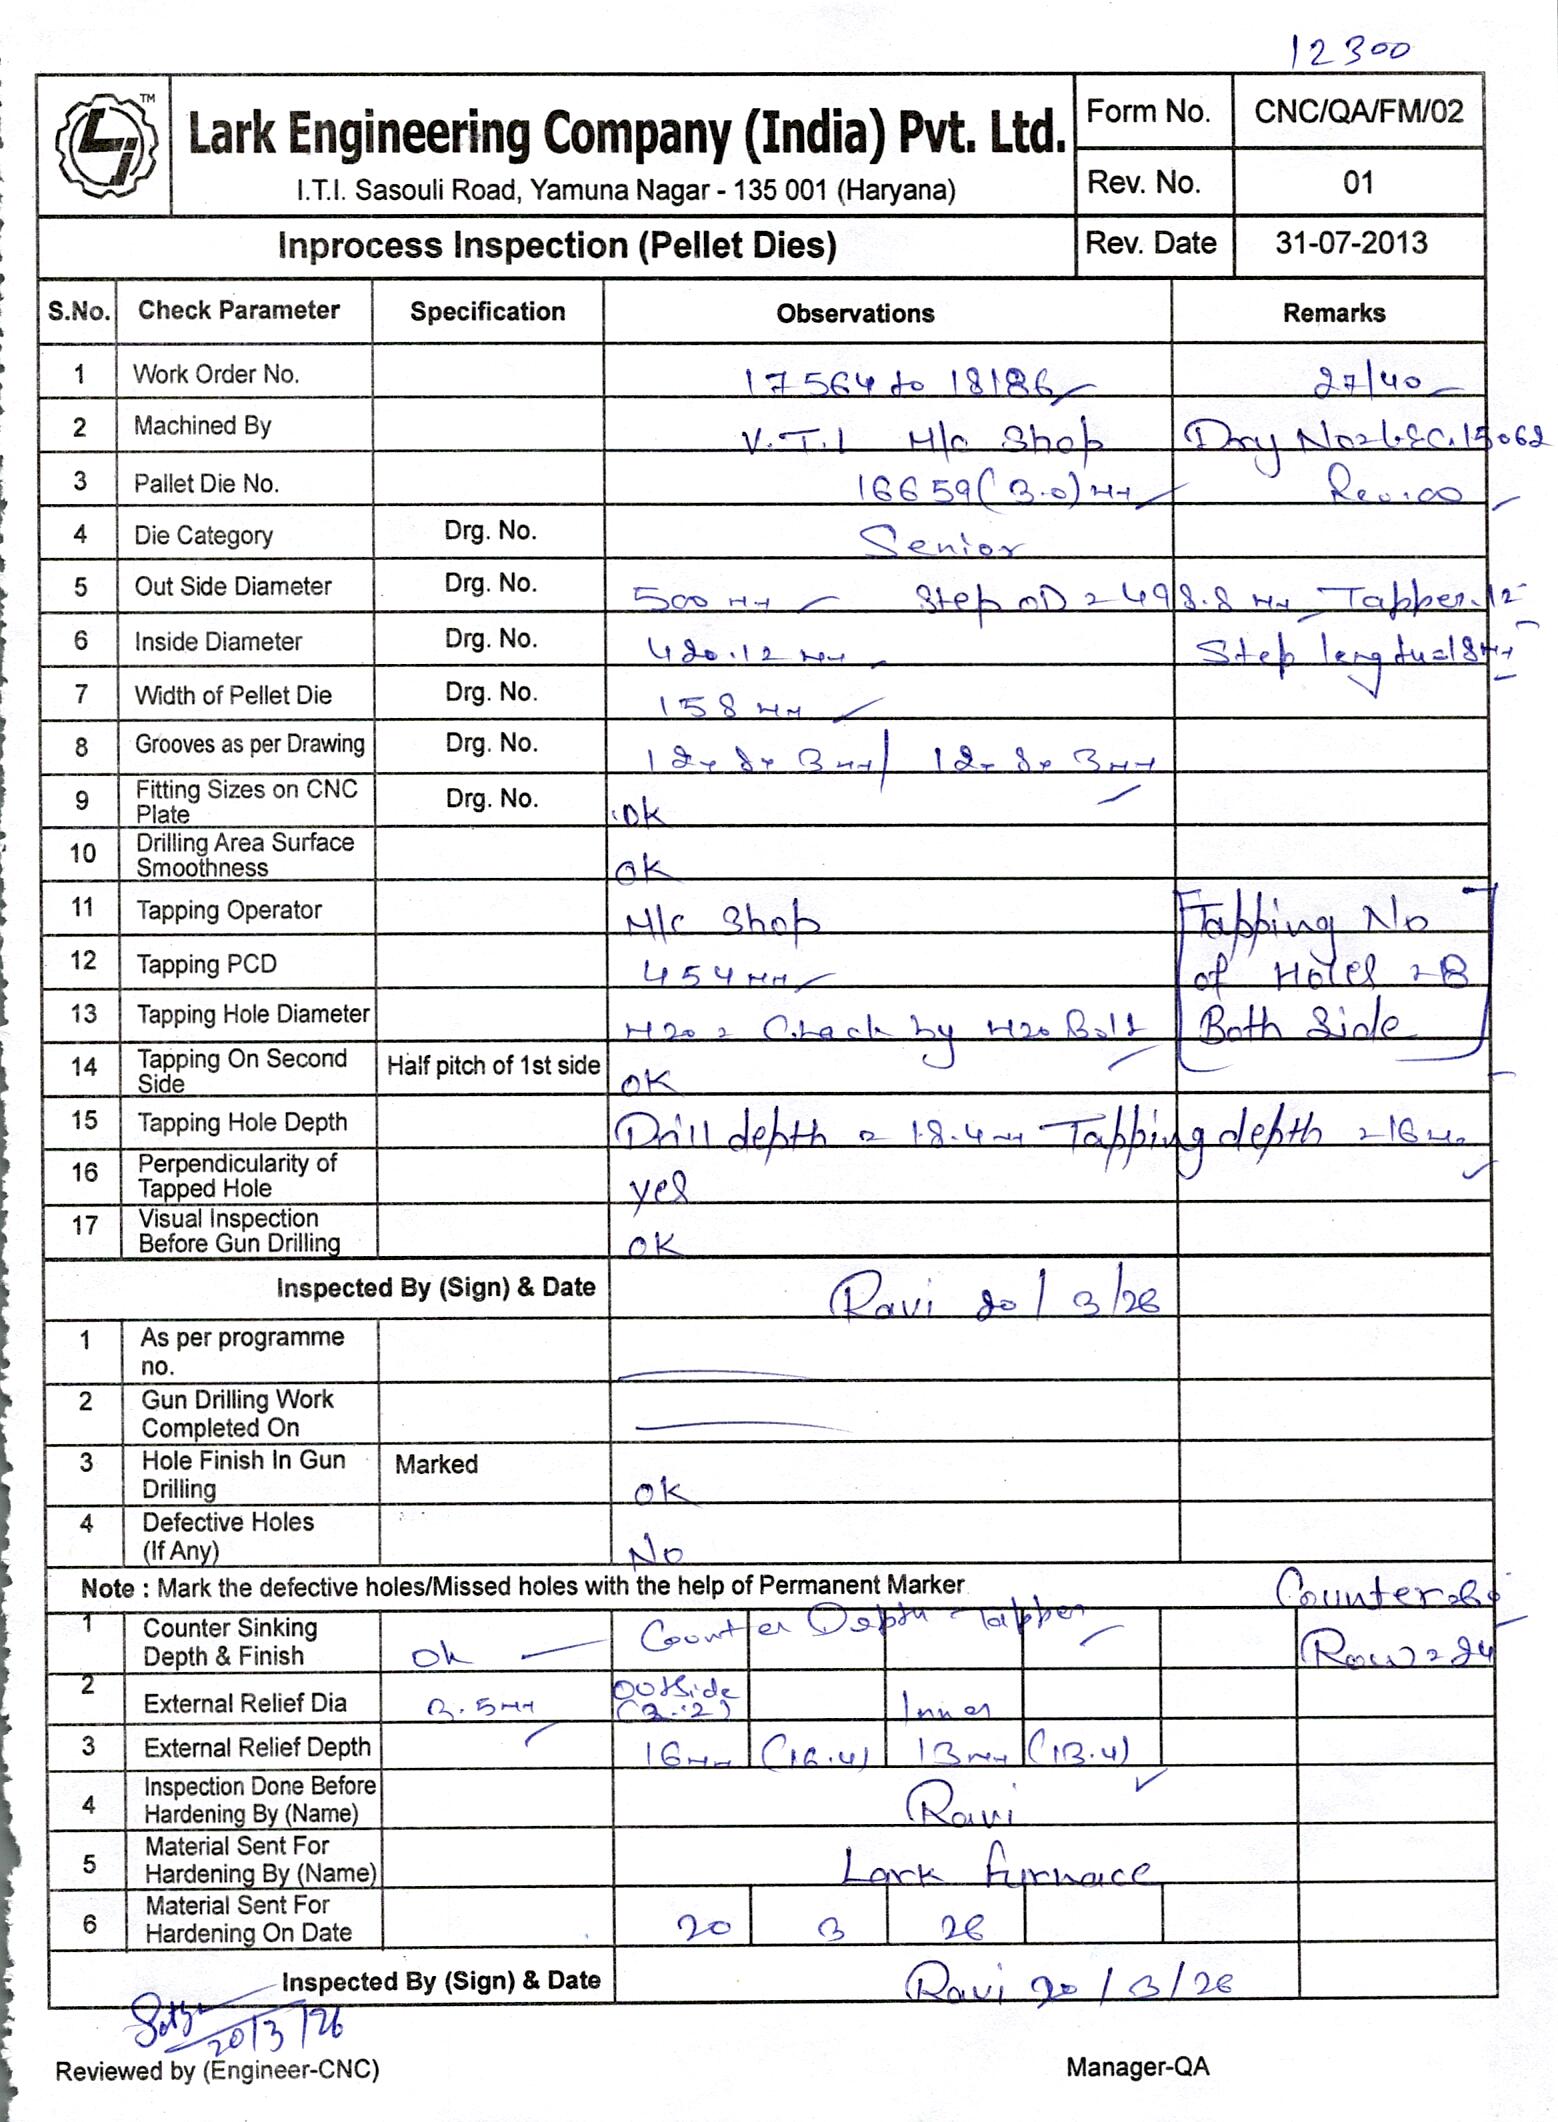 12300
TM
Lark Engineering Company (India) Pvt. Ltd.
I.T.I. Sasouli Road, Yamuna Nagar - 135 001 (Haryana)
Form No. CNC/QA/FM/02
Rev. No. 01
Inprocess Inspection (Pellet Dies)
Rev. Date 31-07-2013
S.No. Check Parameter Specification Observations Remarks
1 Work Order No. 17564 to 18186 27/40
2 Machined By V.T.L M/c Shop
3 Pallet Die No. 16659 (3.0)
4 Die Category Drg. No. Senior
5 Out Side Diameter Drg. No. 500 Step OD = 498.8 Tapper
6 Inside Diameter Drg. No. 420.12 Step length
7 Width of Pellet Die Drg. No. 158
8 Grooves as per Drawing Drg. No.
9 Fitting Sizes on CNC Plate Drg. No. ok
10 Drilling Area Surface Smoothness ok
11 Tapping Operator M/c Shop Tapping No
12 Tapping PCD 454 of Holes
13 Tapping Hole Diameter M20 = Check by M20 Bolt Both Side
14 Tapping On Second Side Half pitch of 1st side OK
15 Tapping Hole Depth Drill depth = 18.4 Tapping depth = 16
16 Perpendicularity of Tapped Hole yes
17 Visual Inspection Before Gun Drilling OK
Inspected By (Sign) & Date Ravi 20/3/26
1 As per programme no.
2 Gun Drilling Work Completed On
3 Hole Finish In Gun Drilling Marked ok
4 Defective Holes (If Any) No
Note : Mark the defective holes/Missed holes with the help of Permanent Marker
1 Counter Sinking Depth & Finish ok Counter Depth Tapper Row = 24
2 External Relief Dia 3.5 Outside (3.2) Inner
3 External Relief Depth 16 (16.4) 13 (13.4)
4 Inspection Done Before Hardening By (Name) Ravi
5 Material Sent For Hardening By (Name) Lark furnace
6 Material Sent For Hardening On Date 20 3 26
Inspected By (Sign) & Date Ravi 20/3/26
20/3/26
Reviewed by (Engineer-CNC) Manager-QA